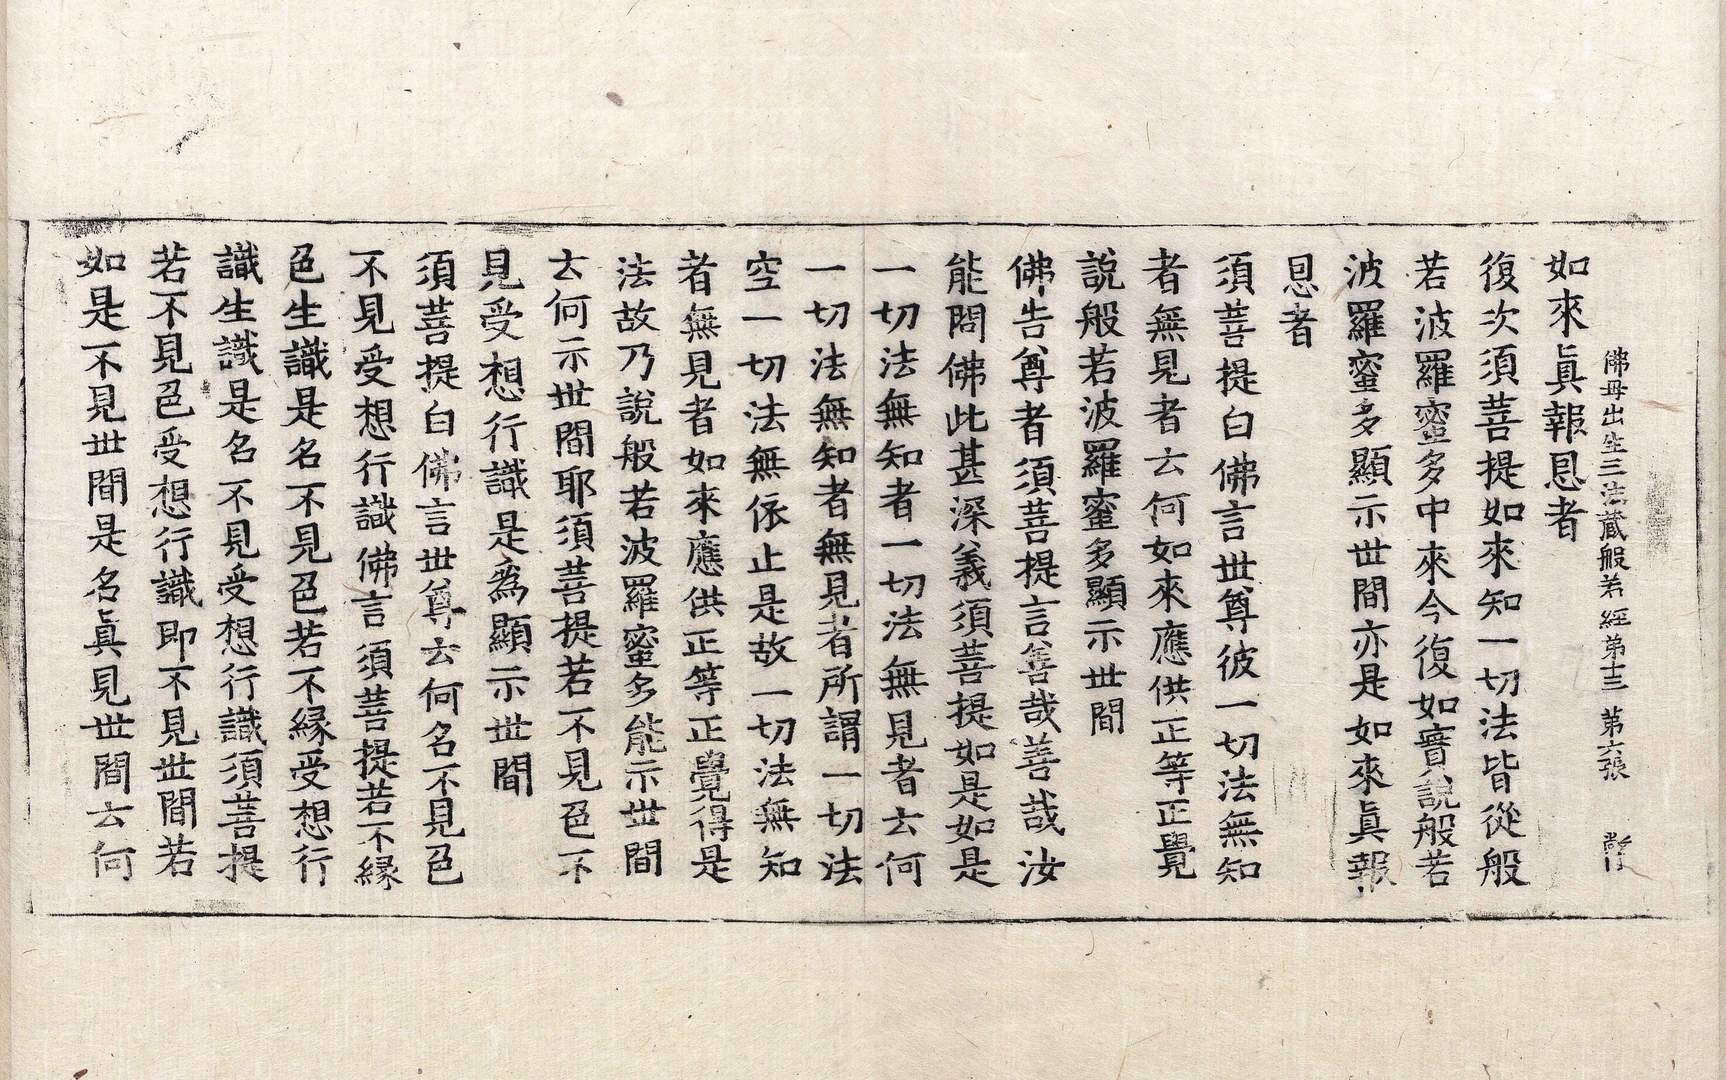 佛母出生三法藏般若經第十三　第六張
如來眞報恩者
復次須菩提如來知一切法皆從般
若波羅蜜多中來今復如實說般若
波羅蜜多顯示世間亦是如來眞報
恩者
須菩提白佛言世尊彼一切法無知
者無見者云何如來應供正等正覺
說般若波羅蜜多顯示世間
佛告尊者須菩提言善哉善哉汝
能問佛此甚深義須菩提如是如是
一切法無知者一切法無見者云何
一切法無知者無見者所謂一切法
空一切法無依止是故一切法無知
者無見者如來應供正等正覺得是
法故乃說般若波羅蜜多能示世間
云何示世間耶須菩提若不見色不
見受想行識是爲顯示世間
須菩提白佛言世尊云何名不見色
不見受想行識佛言須菩提若不縁
色生識是名不見色若不縁受想行
識生識是名不見受想行識須菩提
若不見色受想行識即不見世間若
如是不見世間是名眞見世間云何